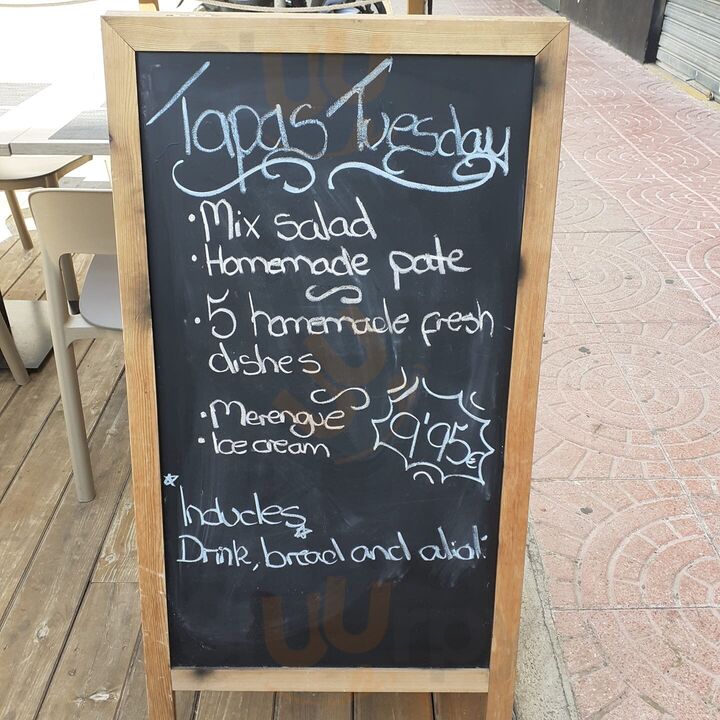 Tapas Tuesday
• Mix salad
• Homemade pate
• 5 homemade fresh
dishes
• Merengue
• Ice cream
9'95€
* Includes
Drink, bread and alioli